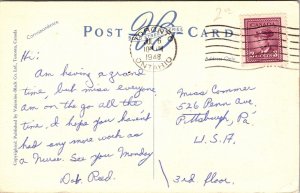 Correspondence
POST CARD
TORONTO
10 PM
1948
ONTARIO
Address Only
Hi:
Am having a grand
time, but miss everyone,
am on the go all the
time, I hope you haven't
had any more work as
a Nurse. See you Monday
Dot. Reed.
Miss Commer
526 Penn Ave.
Pittsburgh, Pa
U.S.A.
3rd Floor.